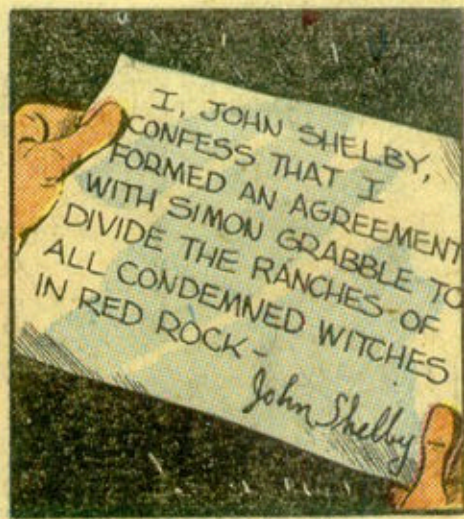 I, JOHN SHELBY,
CONFESS THAT I
FORMED AN AGREEMENT
WITH SIMON GRABBLE TO
DIVIDE THE RANCHES OF
ALL CONDEMNED WITCHES
IN RED ROCK-
John Shelby